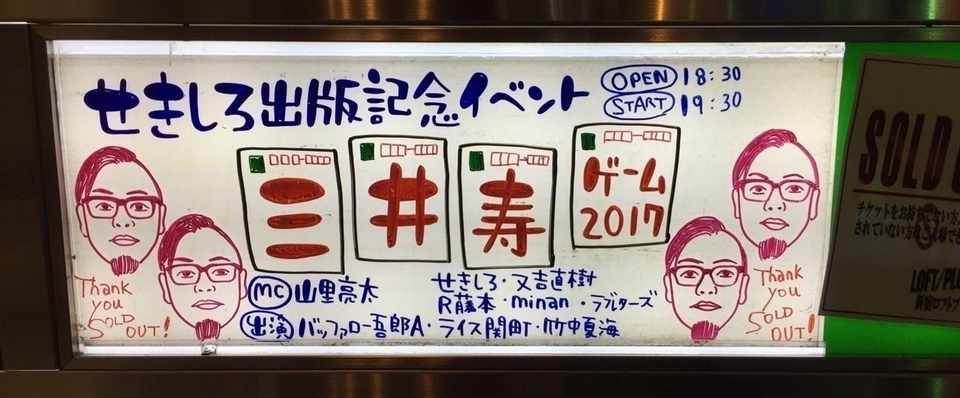 せきしろ出版記念イベント
OPEN 18:30
START 19:30
三井寿ゲーム2017
MC 山里亮太
出演 バッファロー吾郎A・ライス関町・竹中夏海
せきしろ・又吉直樹
R藤本・minan・ラブレターズ
Thank you SOLD OUT!
Thank you SOLD OUT!
SOLD
チケットをお持ちでない方
されていない方
LOFT/PLU
新宿ロフトプ